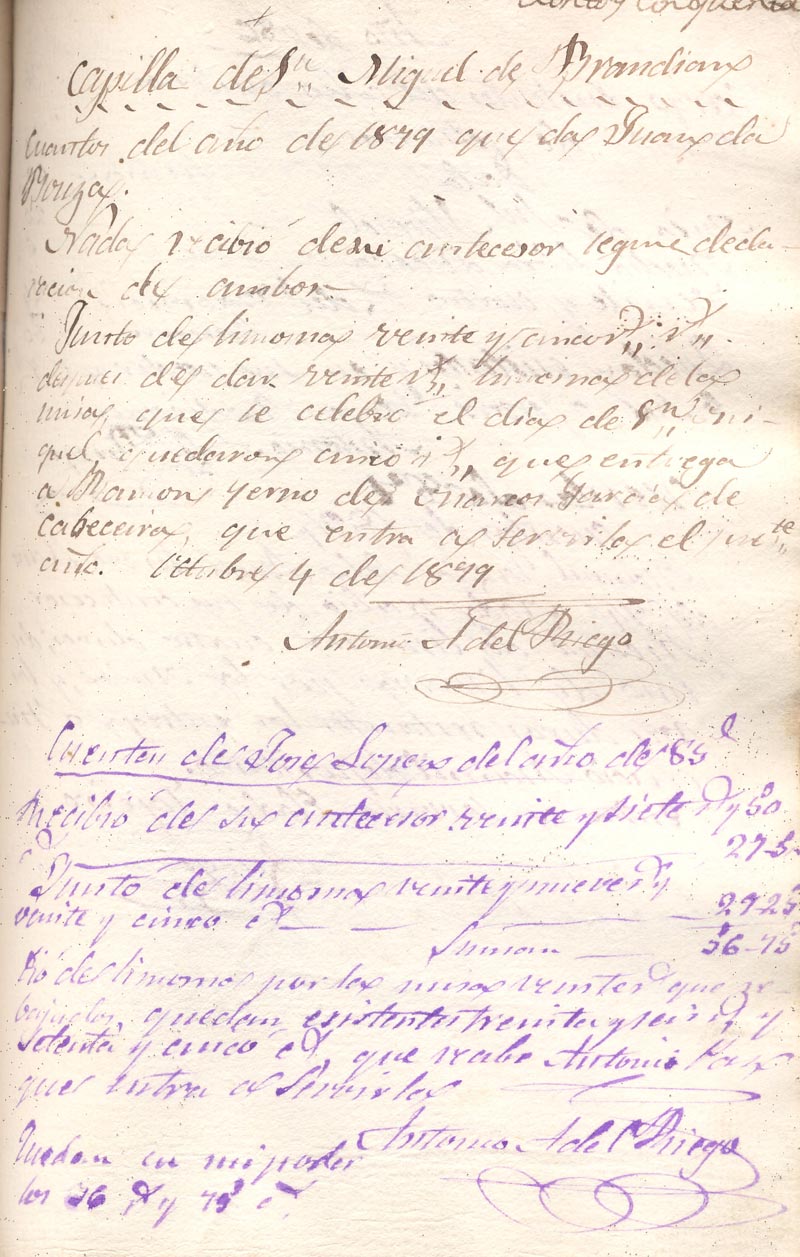 Ciento y cinquenta
Capilla de Sn Miguel de Brandian
Cuentas del año de 1879 que da Juan da
Bouza.
Nada recibió de su antecesor segun decla-
racion de ambos
Junto de limosna veinte y cinco rs
despues de dar veinte rs limosna de las
misas que se celebró el dia de Sn Mi-
guel quedaron cinco rs, que entrega
a Ramon yerno de Marcos Garcia de
Cabeceiras, que entra a servirla el prete
año. Octubre 4 de 1879
Antonio A del Riego
Cuenta de Jose Lopez del año de 85
Recibió de su antecesor veinte y siete rs y 50
27-5
Junto de limosna veinte y nueve rs y
veinte y cinco cs 29-25
Suman 56-75
Dió de limosna por las misas veinte rs que re-
bajados quedan existentes treinta y seis rs y
setenta y cinco cs que recibe Antonio
que entra a servirla
Antonio A del Riego
Quedan en mi poder
los 36 rs y 75 cs